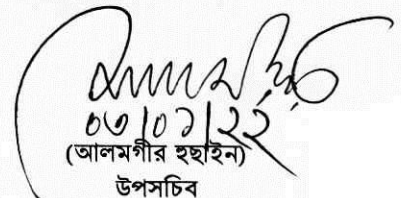 ০৩|০১|২২
(আলমগীর হুছাইন)
উপসচিব